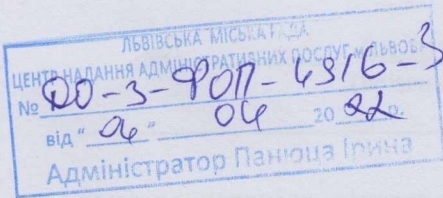 ЛЬВІВСЬКА МІСЬКА РАДА
ЦЕНТР НАДАННЯ АДМІНІСТРАТИВНИХ ПОСЛУГ м. ЛЬВОВА
№ ДО-3-ФОП-4916-З
від "04" 04 2022 р.
Адміністратор Панюца Ірина